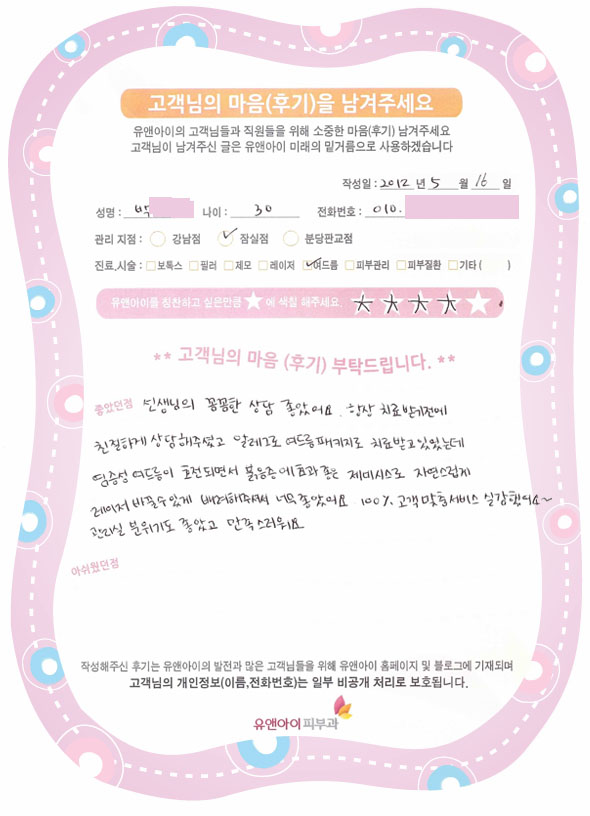 고객님의 마음(후기)을 남겨주세요
유앤아이의 고객님들과 직원들을 위해 소중한 마음(후기) 남겨주세요
고객님이 남겨주신 글은 유앤아이 미래의 밑거름으로 사용하겠습니다
작성일 : 2012 년 5 월 16 일
성명 : 박 나이 : 30 전화번호 : 010.
관리 지점 : 강남점 잠실점 분당판교점
진료,시술 : 보톡스 필러 제모 레이저 여드름 피부관리 피부질환 기타 ( )
유앤아이를 칭찬하고 싶은만큼 ★ 에 색칠 해주세요.
** 고객님의 마음 (후기) 부탁드립니다. **
좋았던점 선생님의 꼼꼼한 상담 좋았어요. 항상 치료받기전에
친절하게 상담해주셨고 알레그로 여드름패키지로 치료받고있었는데
염증성 여드름이 호전되면서 붉음증에 효과좋은 제미시스로 자연스럽게
레이저 바꿀수있게 배려해주셔서 너무 좋았어요. 100% 고객맞춤서비스 실감했어요~
관리실 분위기도 좋았고 만족스러워요
아쉬웠던점
작성해주신 후기는 유앤아이의 발전과 많은 고객님들을 위해 유앤아이 홈페이지 및 블로그에 기재되며
고객님의 개인정보(이름,전화번호)는 일부 비공개 처리로 보호됩니다.
유앤아이피부과